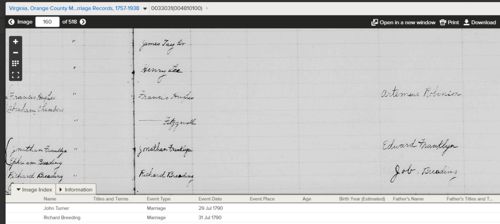 Virginia, Orange County M...rriage Records, 1757-1938 0033031(004810100) ›
Image 160 of 518 Open in a new window Print Download
James Taylor
" Henry Lee
Francis Hughes " Francis Hughes Artemeus Robinson
Abraham Chambers
" Fitzgerald
Jonathan Franklyn " Jonathan Franklyn Edward Franklyn
Ephraim Breeding
Richard Breeding " Richard Breeding Job. Breeding
Image Index Information
Name Titles and Terms Event Type Event Date Event Place Age Birth Year (Estimated) Father's Name Father's Titles and T...
John Turner Marriage 29 Jul 1790
Richard Breeding Marriage 31 Jul 1790